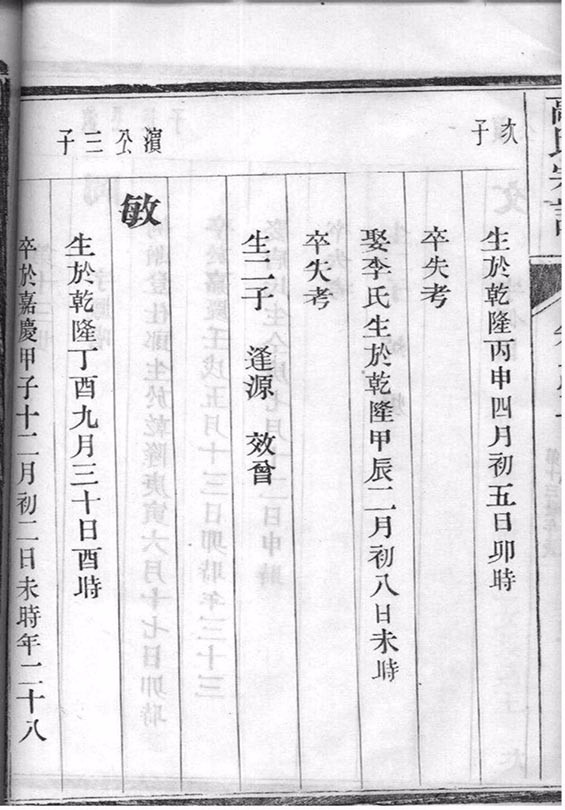 高氏宗譜
次子
生於乾隆丙申四月初五日卯時
卒失考
娶李氏生於乾隆甲辰二月初八日未時
卒失考
生二子 逢源 效曾
濵公三子
敏
生於乾隆丁酉九月三十日酉時
卒於嘉慶甲子十二月初二日未時年二十八